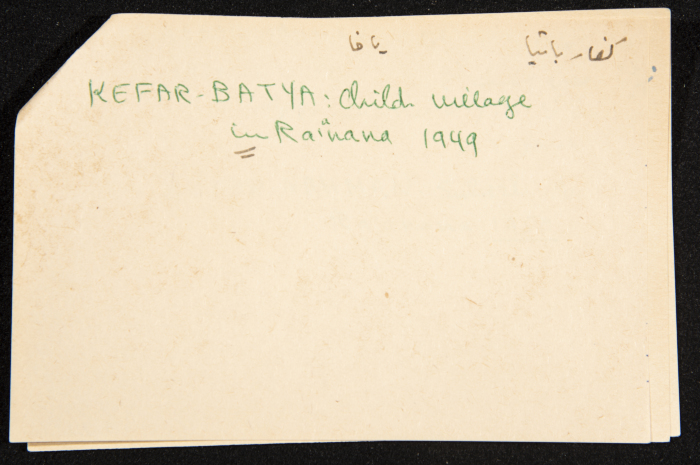 كفار باتيا يافا
KEFAR-BATYA: Child village
in Raïnana 1949